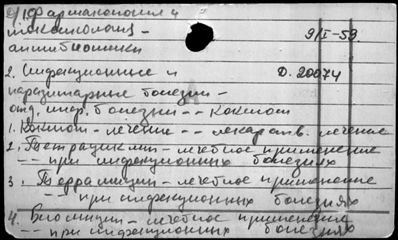 1) Фармакология и
токсикология -
антибиотики
9/I-59
2. Инфекционные и
Д. 20074
паразитарные болезни -
отд. инф. болезни -- Коклюш
1. Коклюш - лечение -- лекарств. лечение
2. Тетрациклин - лечебное применение
-- при инфекционных болезнях
3. Террамицин - лечебное применение
-- при инфекционных болезнях
4. Биомицин - лечебное применение
-- при инфекционных болезнях